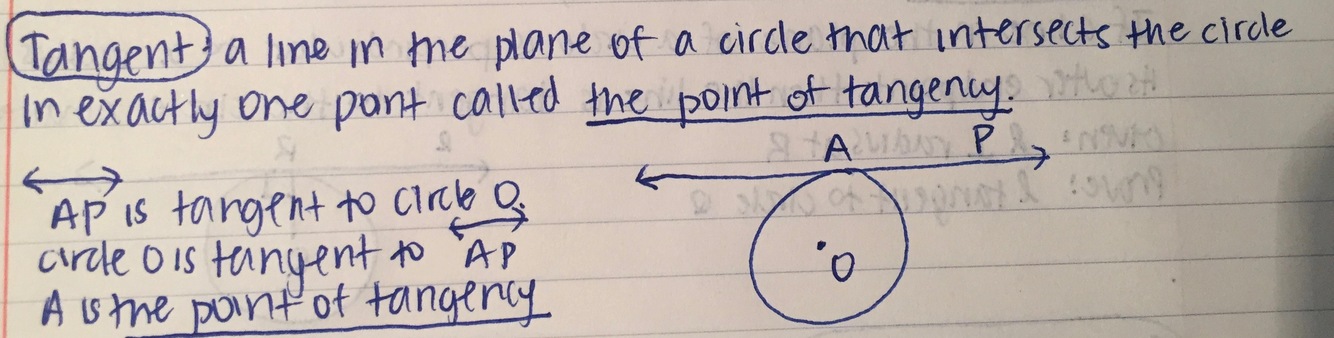 Tangent: a line in the plane of a circle that intersects the circle
in exactly one point called the point of tangency.
A P
AP is tangent to circle O.
circle O is tangent to AP
O
A is the point of tangency